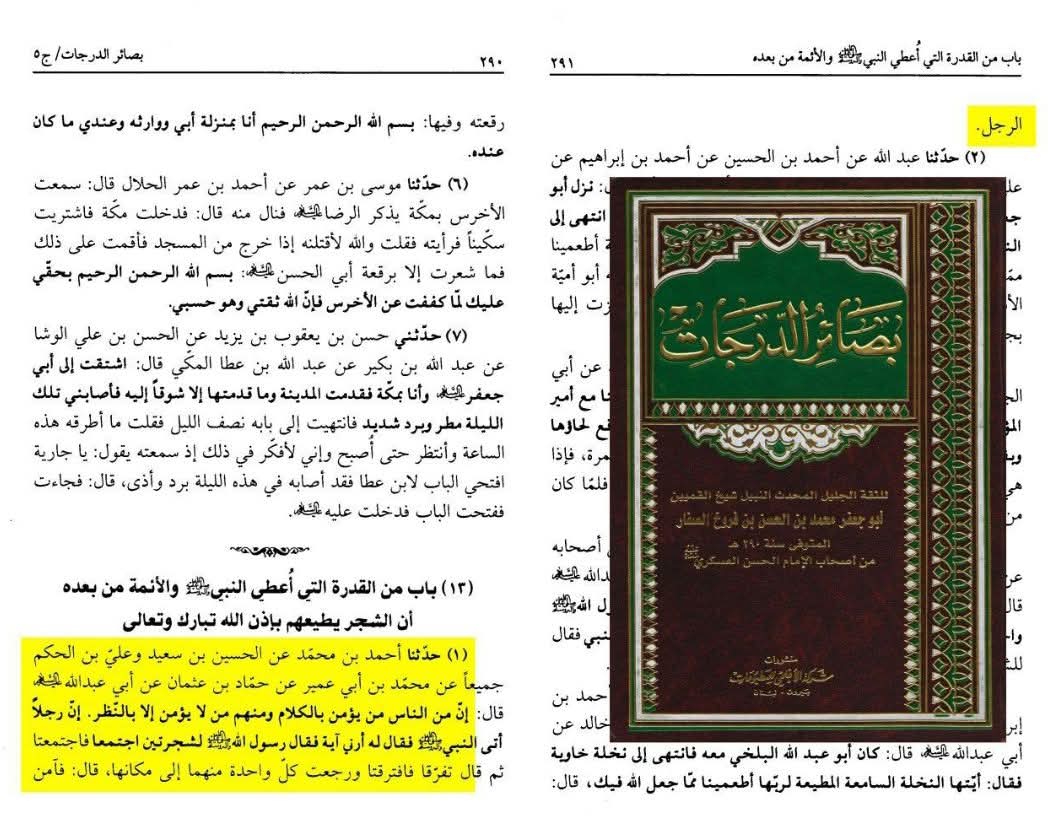 بصائر الدرجات/ ج٥
٢٩٠
رقعته وفيها: بسم الله الرحمن الرحيم أنا بمنزلة أبي ووارثه وعندي ما كان
عنده.
(٦) حدّثنا موسى بن عمر عن أحمد بن عمر الحلال قال: سمعت
الأخرس بمكّة يذكر الرضا عليه السلام فنال منه قال: فدخلت مكّة فاشتريت
سكّيناً فرأيته فقلت والله لأقتلنه إذا خرج من المسجد فأقمت على ذلك
فما شعرت إلا برقعة أبي الحسن عليه السلام: بسم الله الرحمن الرحيم بحقّي
عليك لمّا كففت عن الأخرس فإنّ الله ثقتي وهو حسبي.
(٧) حدّثني حسن بن يعقوب بن يزيد عن الحسن بن علي الوشا
عن عبد الله بن بكير عن عبد الله بن عطا المكّي قال: اشتقت إلى أبي
جعفر عليه السلام وأنا بمكّة فقدمت المدينة وما قدمتها إلا شوقاً إليه فأصابني تلك
الليلة مطر وبرد شديد فانتهيت إلى بابه نصف الليل فقلت ما أطرقه هذه
الساعة وأنتظر حتى أُصبح وإني لأفكّر في ذلك إذ سمعته يقول: يا جارية
افتحي الباب لابن عطا فقد أصابه في هذه الليلة برد وأذى، قال: فجاءت
ففتحت الباب فدخلت عليه عليه السلام.
(١٣) باب من القدرة التي أُعطي النبي ﷺ والأئمة من بعده
أن الشجر يطيعهم بإذن الله تبارك وتعالى
(١) حدّثنا أحمد بن محمّد عن الحسين بن سعيد وعليّ بن الحكم
جميعاً عن محمّد بن أبي عمير عن حمّاد بن عثمان عن أبي عبدالله عليه السلام
قال: إنّ من الناس من يؤمن بالكلام ومنهم من لا يؤمن إلا بالنّظر. إنّ رجلاً
أتى النبي ﷺ فقال له أرني آية فقال رسول الله ﷺ لشجرتين اجتمعا فاجتمعتا
ثم قال تفرّقا فافترقتا ورجعت كلّ واحدة منهما إلى مكانها، قال: فآمن
باب من القدرة التي أُعطي النبي ﷺ والأئمة من بعده
٢٩١
الرجل.
(٢) حدّثنا عبد الله عن أحمد بن الحسين عن أحمد بن إبراهيم عن
نزل أبو
انتهى إلى
أطعمينا
أبو أميّة
إليها
عن أبي
مع أمير
لحاؤها
فإذا
فلمّا كان
من
أصحابه
عن
قال
فقال
أحمد بن
خالد عن
أبي عبدالله عليه السلام قال: كان أبو عبد الله البلخي معه فانتهى إلى نخلة خاوية
فقال: أيّتها النخلة السامعة المطيعة لربّها أطعمينا ممّا جعل الله فيك، قال:
بصائر الدرجات
للثقة الجليل المحدث النبيل شيخ القميين
أبو جعفر محمد بن الحسن بن فروخ الصفار
المتوفى سنة ٢٩٠ هـ
من أصحاب الإمام الحسن العسكري
منشورات
شركة الأعلمي للمطبوعات
بيروت - لبنان